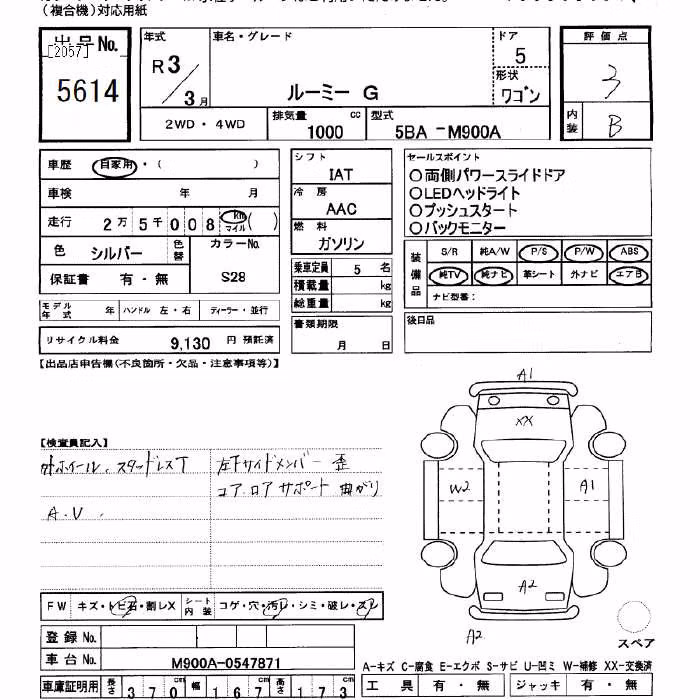 （複合機）対応用紙
出品No.
[2057]
5614
年式 車名・グレード ドア
R3/3月 ルーミー G 5
形状
ワゴン
2WD・4WD 排気量 1000 cc 型式 5BA -M900A
評価点
3
内装 B
車歴 自家用・( )
車検 年 月
走行 2万5千008 km マイル ( )
色 シルバー 色替 カラーNo.
保証書 有・無 S28
モデル年式 年 ハンドル 左・右 ディーラー・並行
リサイクル料金 9,130 円 預託済
シフト
IAT
冷房
AAC
燃料
ガソリン
乗車定員 5 名
積載量 kg
総重量 kg
書類期限
月 日
セールスポイント
○両側パワースライドドア
○LEDヘッドライト
○プッシュスタート
○バックモニター
装備品 S/R 純A/W P/S P/W ABS
純TV 純ナビ 革シート 外ナビ エアB
ナビ型番：
後日品
【出品店申告欄(不良箇所・欠品・注意事項等)】
【検査員記入】
外ホイール、スタッドレスT
A.V.
左Fサイドメンバー 歪
コア.ロアサポート 曲がり
A1
XX
W2
A1
A2
A2
スペア
FW キズ・トビ石・割レX シート内装 コゲ・穴・汚レ・シミ・破レ・スレ
登録No.
車台No. M900A-0547871
車庫証明用 長さ 370cm 幅 167cm 高さ 173cm
A-キズ C-腐食 E-エクボ S-サビ U-凹ミ W-補修 XX-交換済
工具 有・無 ジャッキ 有・無